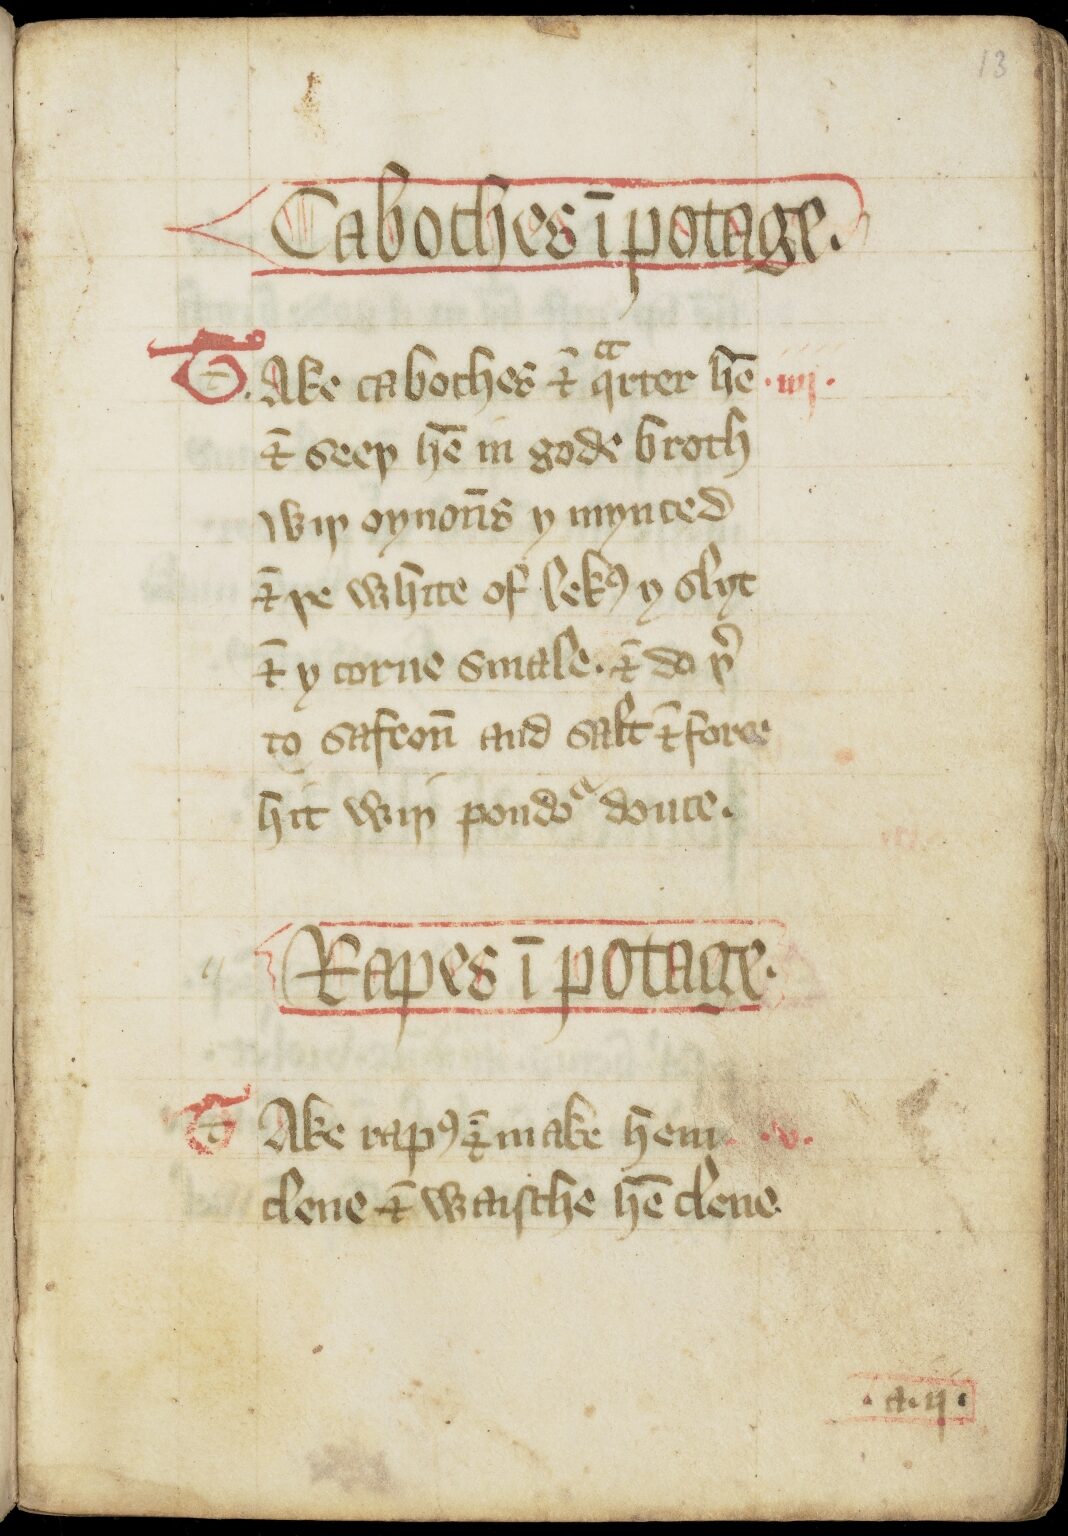 13
Caboches ī potage.
TAke caboches ⁊ qᵃrter hē .iiij.
⁊ seeþ hē in gode broth
wiþ oynoñs y mynced
⁊ þe white of lekꝯ y slyt
⁊ y corue smale. ⁊ do þ̉
to safroñ and salt ⁊ force
hit wiþ poudo͛ douce.
Rapes ī potage.
TAke rapꝯ ⁊ make hem .v.
clene ⁊ waische hē clene.
.a.ij.